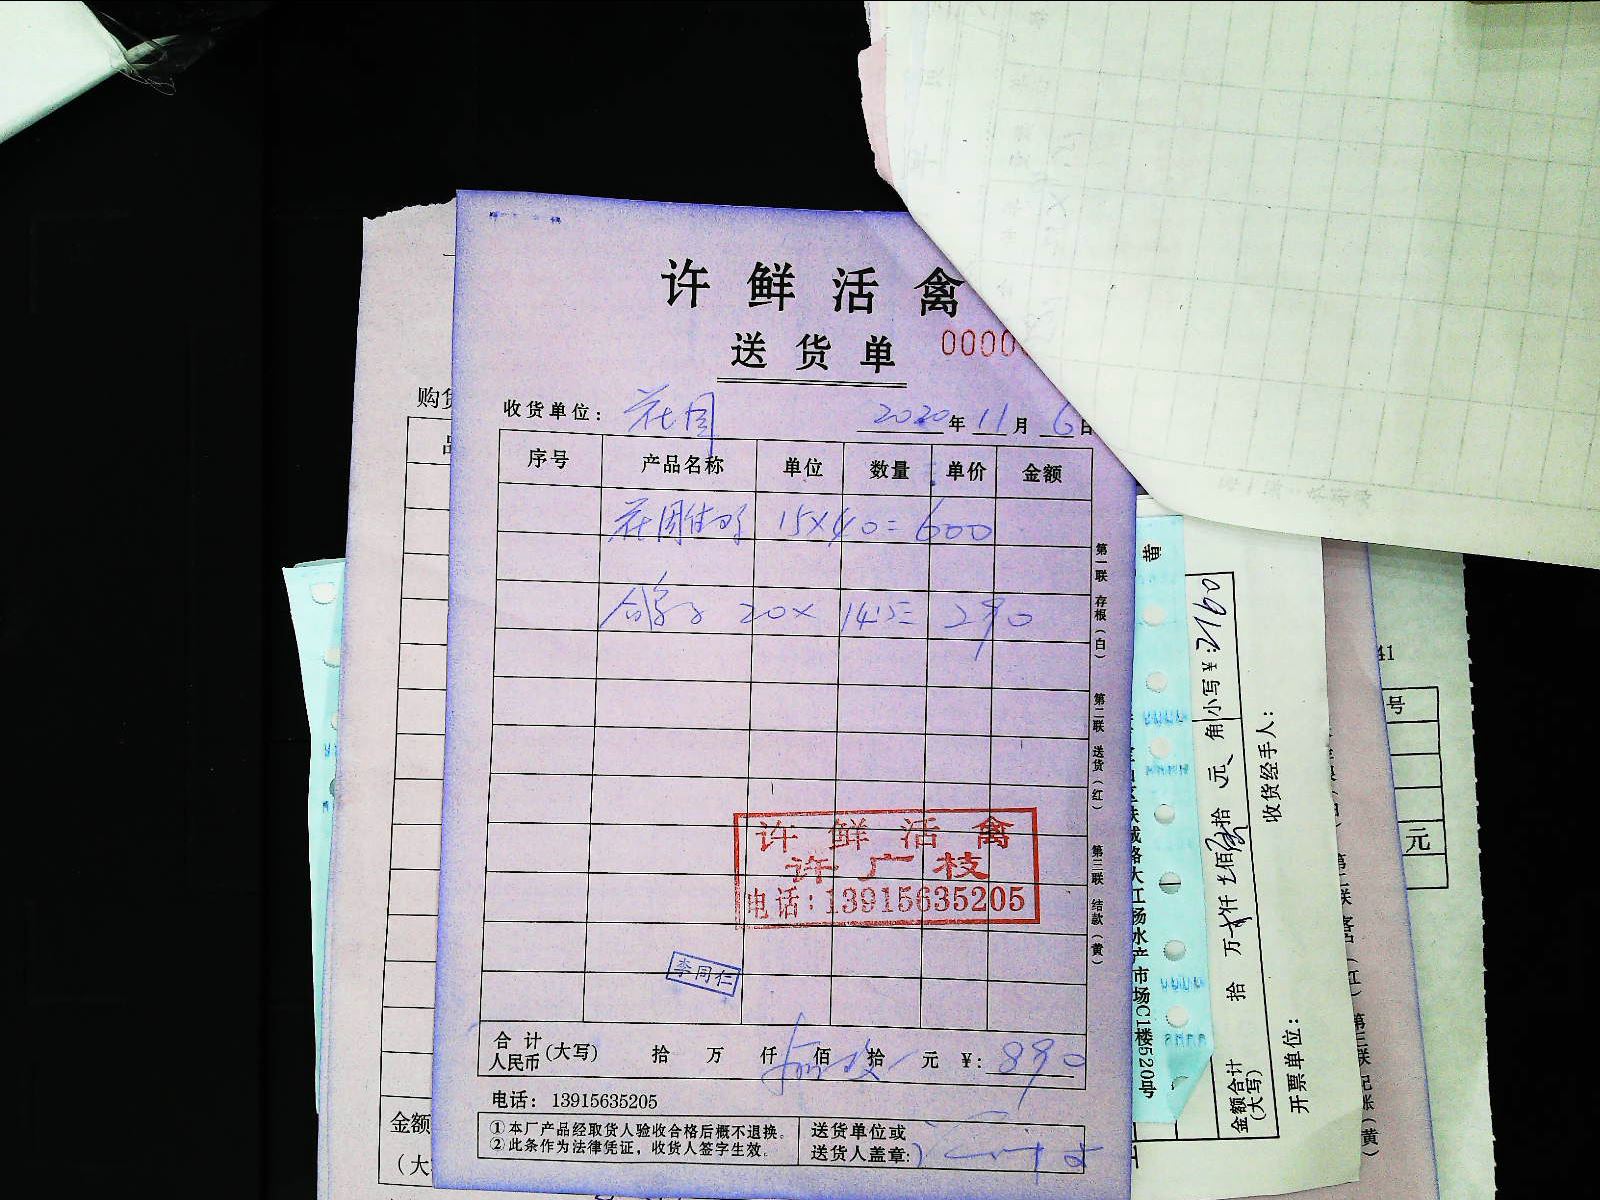 许鲜活禽
送货单
0000
收货单位： 花园 2020年11月6日
序号 产品名称 单位 数量 单价 金额
15×40=600
鸽子 20× 14.5= 290
许鲜活禽
许广枝
电话：13915635205
李同仁
合计人民币(大写) 拾 万 仟 佰 拾 元 ¥：890
电话：13915635205
①本厂产品经取货人验收合格后概不退换。
②此条作为法律凭证，收货人签字生效。
送货单位或
送货人盖章：
第一联 存根（白） 第二联 送货（红） 第三联 结款（黄）
购货
金额
（大
黄
大江杨水产市场C1楼520号
金额合计(大写) 拾 万 仟 佰 拾 元 角 小写¥：2160
开票单位： 收货经手人：
41
号
元